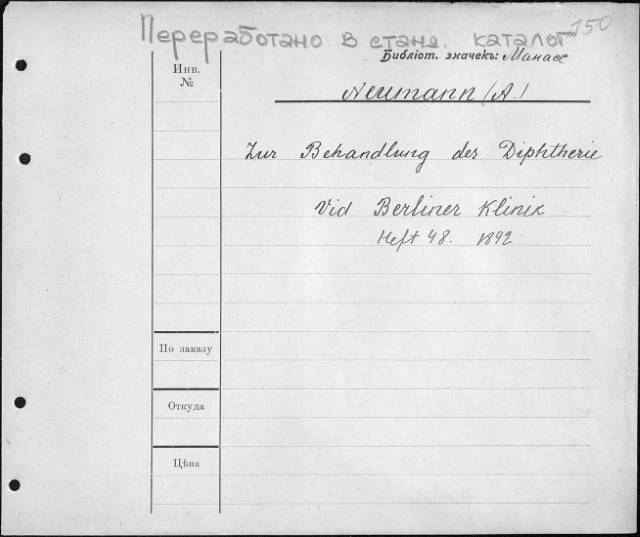 Переработано в станд. каталог 150
Библіот. значекъ: Манасс
Инв.
№
Neumann (A.)
Zur Behandlung der Diphtherie
Vid Berliner Klinik
Heft 48. 1892
По заказу
Откуда
Цѣна